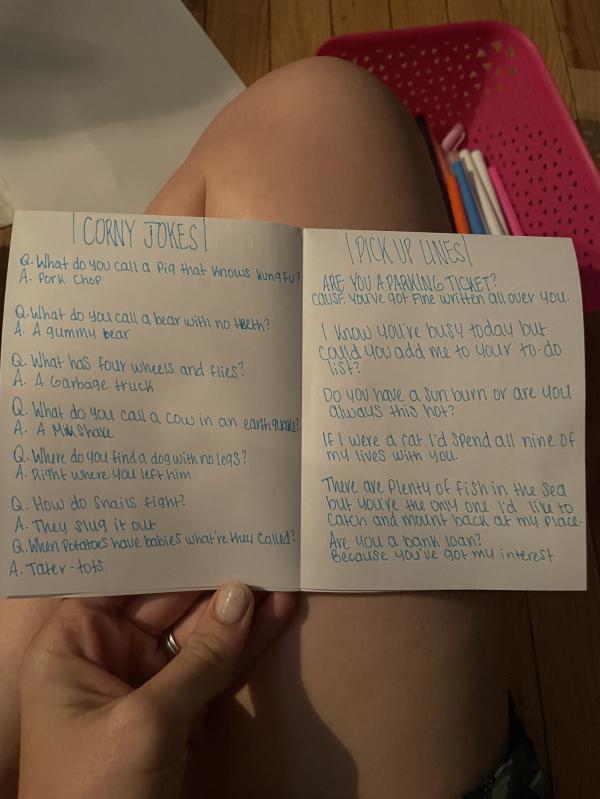 CORNY JOKES
Q. What do you call a pig that knows kung fu?
A. Pork chop
Q. What do you call a bear with no teeth?
A. A gummy bear
Q. What has four wheels and flies?
A. A Garbage truck
Q. What do you call a cow in an earthquake?
A. A Milkshake
Q. Where do you find a dog with no legs?
A. Right where you left him
Q. How do snails fight?
A. They slug it out
Q. When potatoes have babies what're they called?
A. Tater-tots
PICK UP LINES
ARE YOU A PARKING TICKET?
CAUSE YOU'VE GOT FINE written all over you.
I know you're busy today but
could you add me to your to-do
list?
Do you have a sun burn or are you
always this hot?
If I were a cat I'd spend all nine of
my lives with you.
There are plenty of fish in the sea
but you're the only one I'd like to
catch and mount back at my place.
Are you a bank loan?
Because you've got my interest